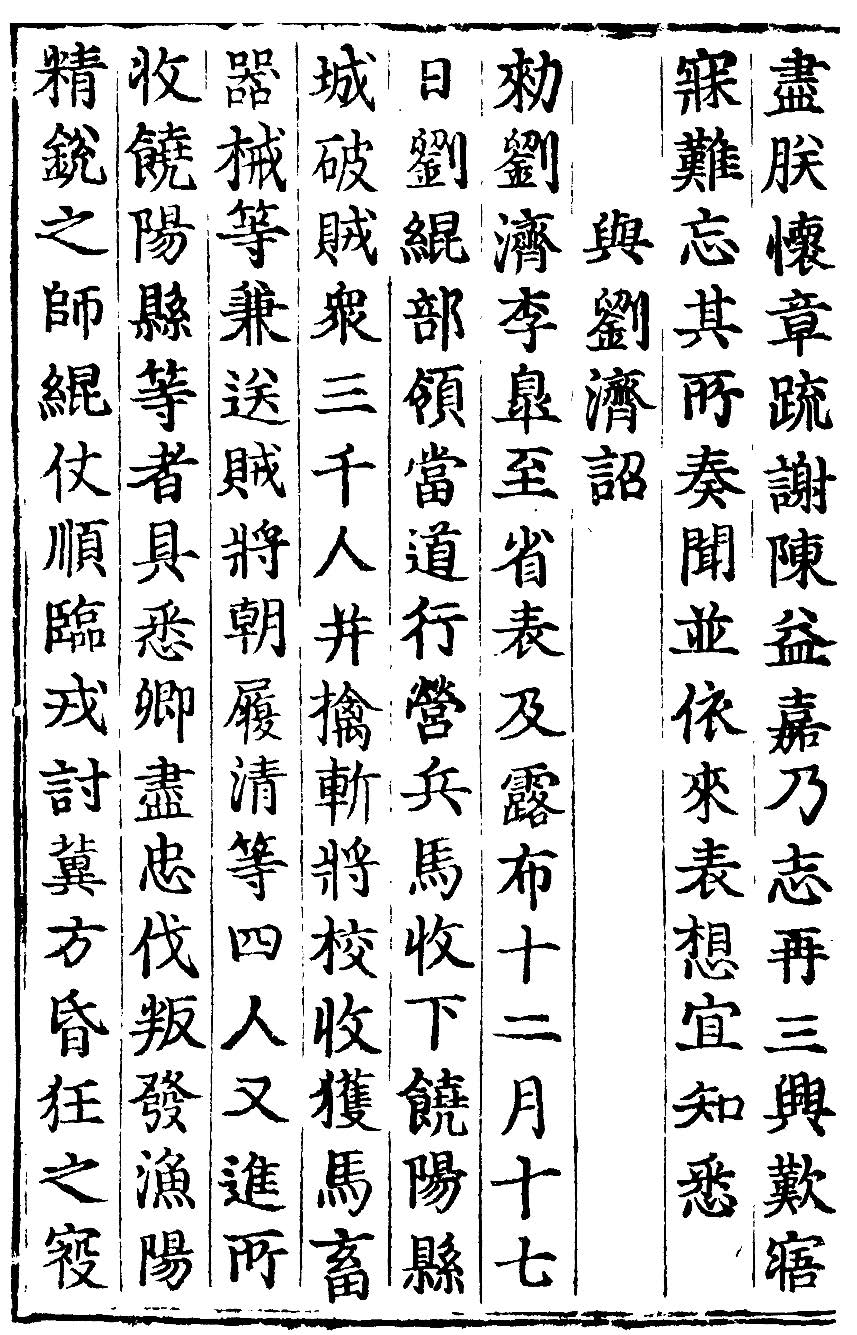 盡朕懷章疏謝陳益嘉乃志再三興歎寤
寐難忘其所奏聞並依來表想宜知悉
與劉濟詔
勑劉濟李皐至省表及露布十二月十七
日劉緄部領當道行營兵馬收下饒陽縣
城破賊衆三千人并擒斬將校收獲馬畜
器械等兼送賊將朝履清等四人又進所
收饒陽縣等者具悉卿盡忠伐叛發漁陽
精銳之師緄仗順臨戎討冀方昏狂之